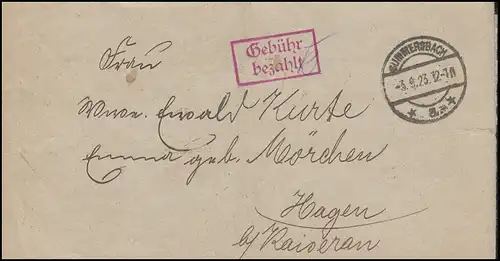 Frau
Gebühr
bezahlt
GUMMERSBACH
-3.9.23.12-1N
* a *
Wwe. Ewald Kurte
Emma geb. Mörchen
Hagen
b/ Kaiserau